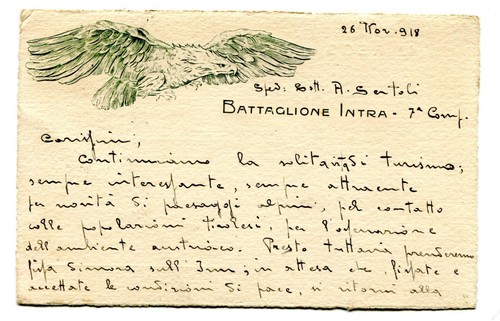 26 Nov. 918
Sped: Dott. A. Bertoli
BATTAGLIONE INTRA - 7ª Comp.
Carissimi,
Continuiamo la solita vita di turismo;
sempre interessante, sempre attraente
per novità di paesaggi alpini, pel contatto
colle popolazioni tirolesi, per l'osservazione
dell'ambiente austriaco. Presto tuttavia prenderemo
fissa dimora sull'Inn; in attesa che, fissate e
accettate le condizioni di pace, si ritorni alla